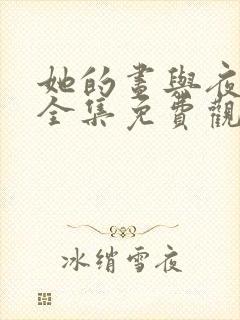 她的畫與夜
全集免費觀
冰綃雪夜